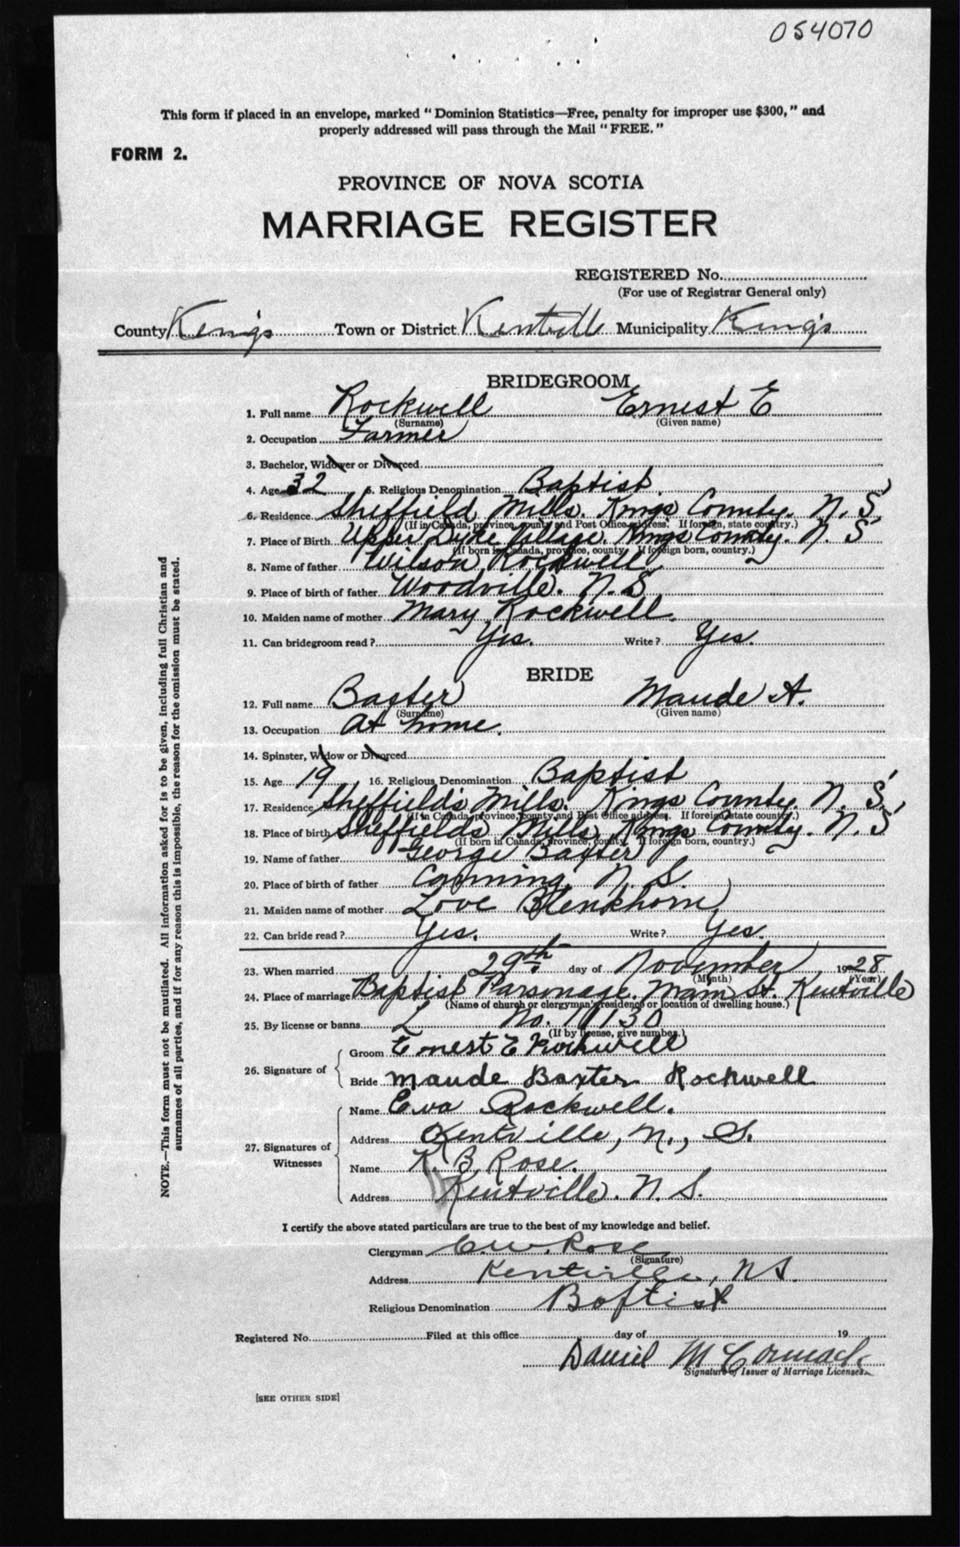 054070
This form if placed in an envelope, marked "Dominion Statistics—Free, penalty for improper use $300," and
properly addressed will pass through the Mail "FREE."
FORM 2.
PROVINCE OF NOVA SCOTIA
MARRIAGE REGISTER
REGISTERED No.
(For use of Registrar General only)
County Kings Town or District Kentville Municipality Kings
BRIDEGROOM
1. Full name Rockwell Ernest E
(Surname) (Given name)
2. Occupation Farmer
3. Bachelor, Widower or Divorced
4. Age 32 5. Religious Denomination Baptist
6. Residence Sheffield Mills. Kings County. N. S.
(If in Canada, province, county and Post Office address. If foreign, state country.)
7. Place of Birth Upper Dyke Village. Kings County. N. S
(If born in Canada, province, county. If foreign born, country.)
8. Name of father Wilson Rockwell
9. Place of birth of father Woodville. N. S
10. Maiden name of mother Mary Rockwell.
11. Can bridegroom read? Yes. Write? Yes.
BRIDE
12. Full name Baxter Maude A.
(Surname) (Given name)
13. Occupation At home.
14. Spinster, Widow or Divorced
15. Age 19 16. Religious Denomination Baptist
17. Residence Sheffields Mills. Kings County. N. S.
(If in Canada, province, county and Post Office address. If foreign state country.)
18. Place of birth Sheffields Mills, Kings County. N. S
(If born in Canada, province, county. If foreign born, country.)
19. Name of father George Baxter
20. Place of birth of father Canning, N. S.
21. Maiden name of mother Love Blenkhorn
22. Can bride read? Yes. Write? Yes.
23. When married 29th day of November 1928
(Month) (Year)
24. Place of marriage Baptist Parsonage, Main St. Kentville
(Name of church or clergyman's residence or location of dwelling house.)
25. By license or banns L No. 11130
(If by license, give number.)
26. Signature of
Groom Ernest E Rockwell
Bride Maude Baxter Rockwell
27. Signatures of Witnesses
Name Eva Rockwell.
Address Kentville, N., S.
Name K B Rose.
Address Kentville. N. S.
I certify the above stated particulars are true to the best of my knowledge and belief.
Clergyman C. W. Rose
(Signature)
Address Kentville, NS.
Religious Denomination Baptist
Registered No. Filed at this office day of 19
Daniel McCormack
Signature of Issuer of Marriage Licenses.
[SEE OTHER SIDE]
NOTE.—This form must not be mutilated. All information asked for is to be given, including full Christian and
surnames of all parties, and if for any reason this is impossible, the reason for the omission must be stated.